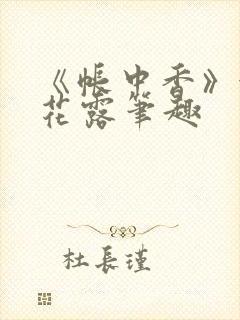 《帐中香》
花露笔趣
杜長瑾